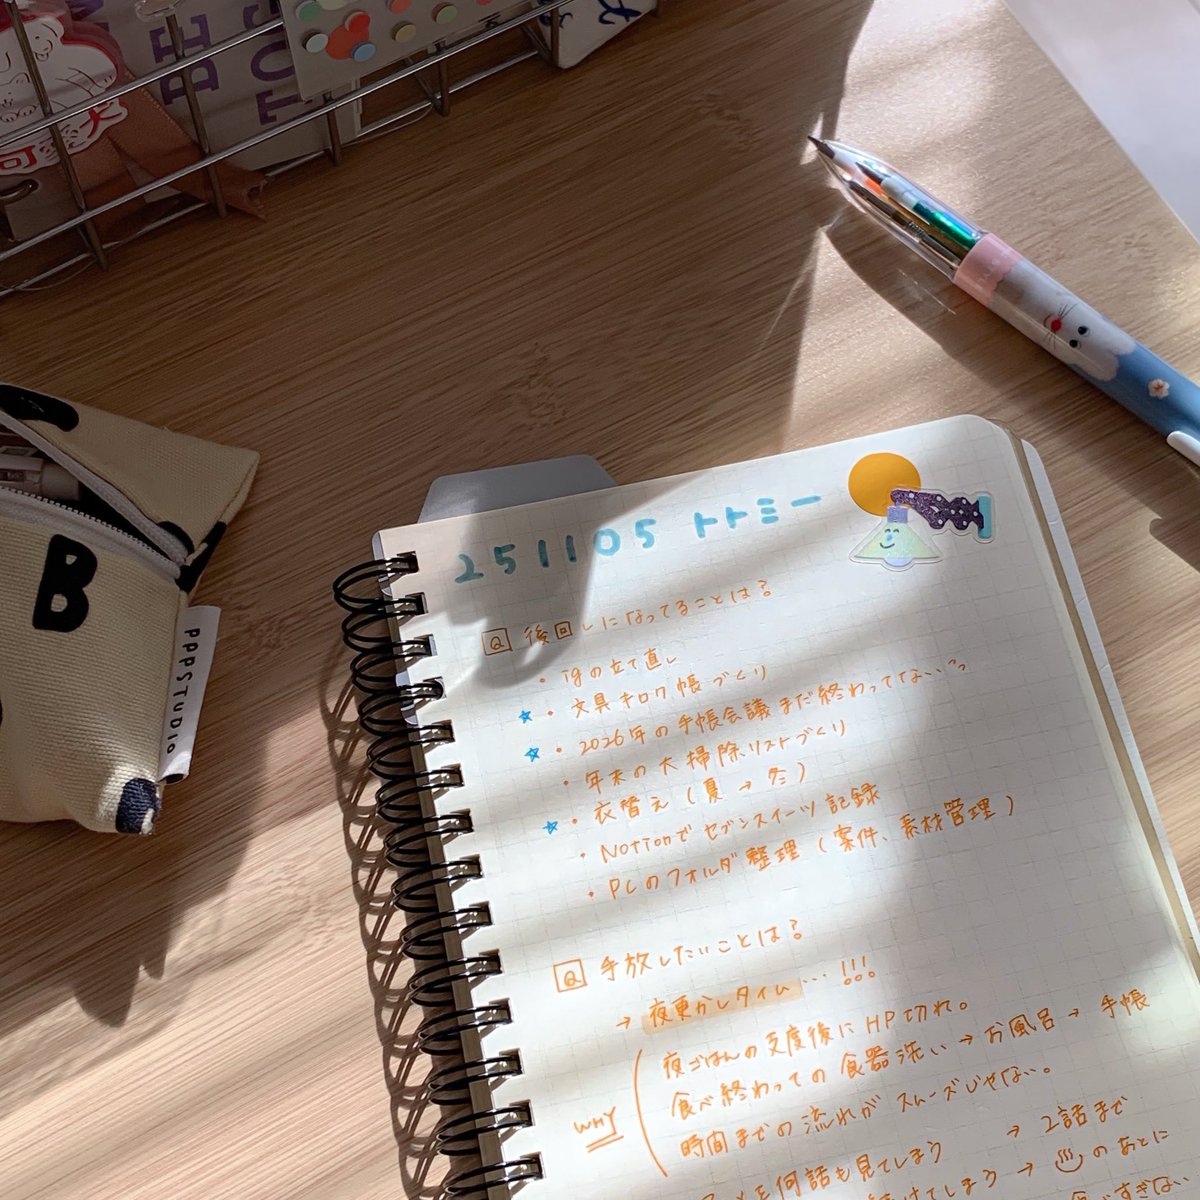 BE
TO
可
B
PPPSTUDIO
251105 トトミー
Q 後回しになってることは?
・igの立て直し
☆・文具キロク帳づくり
☆・2026年の手帳会議まだ終わってない〜
・年末の大掃除リストづくり
☆・衣替え(夏→冬)
・Notionでセブンスイーツ記録
・PCのフォルダ整理(案件、素材管理)
Q 手放したいことは?
→ 夜更かしタイム…!!!
WHY
夜ごはんの支度後にHP切れ。
食べ終わっての食器洗い→お風呂→手帳
時間までの流れがスムーズじゃない。
を何話も見てしまう → 2話まで
けてしまう → のあとに
すぎない